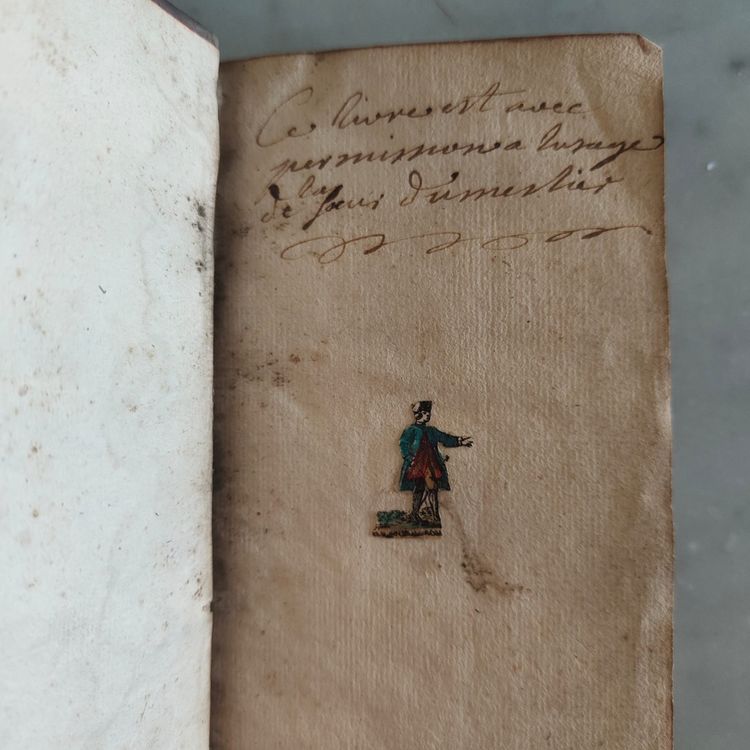 Ce livre est avec
permission a lusage
de la soeur dumestier